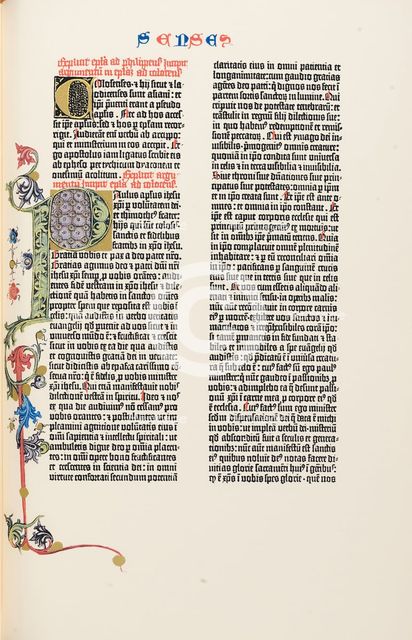 SENSES
Explicit epl̄a ad philippenses incipit
argumentū in epl̄am ad colosenses
Colosenses ⁊ hij sicut ⁊ la-
odicenses sunt asiani: et
ipi p̄uenti erant a pseudo
aplis. Nec ad hos acces-
sit ip̄e aplus: sed ⁊ hos p̄ epl̄am recor-
rigit. Audierant enī verbū ab accippo:
qui et ministeriū in eos accepit. Er-
go apostolus iam ligatus scribit eis
ab epheso per tychicum dyaconem et
onesimū acolitum. Explicit argu-
mentū incipit epl̄a ad colocenses.
Paulus aplus ih̄u
xp̄i p̄ voluntatem dei:
et thimotheꝰ frater:
hijs qui sūt colosis
sanctis et fidelibus
fratribꝫ in xp̄o ih̄esu.
Gratia vobis et pax a deo patre nr̄o.
Gratias agimus deo et patri dn̄i nr̄i
ih̄esu xp̄i semꝑ ꝓ vobis orātes: audi-
entes fidē vestram in xp̄o ih̄esu ⁊ dile-
ctionē quā habetis in sanctos om̄es
propter spem que reposita est vobis ī
celis: quā audistis in verbo veritatis
euangelij qd̄ ꝑuenit ad vos sicut ⁊ in
vniuerso mūdo ē: ⁊ fructificat ⁊ crescit
sicut in vobis ex ea die qua audistis
⁊ cognouistis gratiā dei in veritate:
sicut didicistis ab epafra carissimo cō-
seruo nr̄o: qui ē fidelis ꝓ vobis minister
xp̄i ih̄esu. Qui etiā manifestauit nobis
dilectionē vestrā in spiritu. Ideo ⁊ nos
ex qua die audiuimꝰ nō cessamꝰ pro
vobis orantes: ⁊ postulantes ut im-
pleamini agnicione volūtatis eius ī
om̄i sapientia ⁊ intellectu spirituali: ut
ambuletis digne deo ꝑ om̄ia placen-
tes: in om̄i opere bono fructificantes
et crescentes in scientia dei: in omni
virtute confortati secundum potenciā
claritatis eius in omni pacientia et
longanimitate: cum gaudio gratias
agētes deo patri: qui dignos nos fecit ī
partem sortis sanctorꝫ in lumine. Qui
eripuit nos de potestate tenebrarū: et
trāstulit in regnū filij dilectionis sue:
in quo habemꝰ redemptionē et remis-
sionē peccatorꝫ. Qui est ymago dei in-
uisibilis: primogenitꝰ omnis creature:
quoniā in ip̄o condita sunt vniuersa
in celis ⁊ in terra visibilia ⁊ inuisibilia.
Siue throni siue dn̄ationes siue prin-
cipatus siue potestates: omnia ꝑ ip̄m
et in ip̄o creata sunt. Et ip̄e est ante o-
mnes: et omnia in ip̄o constant. Et
ip̄e est caput corporis ecclesie: qui est
principiū primogenitꝰ ex mortuis: ut
sit in om̄ibꝫ ip̄e primatū tenens. Quia
in ip̄o complacuit omnem plenitudinē
inhabitare: ⁊ ꝑ eū reconciliari omnia
in ip̄o: pacificans ꝑ sanguinē crucis
eius siue que in terris siue que in celis
sunt. Et vos cum essetis aliquādo ali-
enati ⁊ inimici sensu in operibꝫ malis:
nūc autē recōciliauit in corpore carnis
eiꝰ ꝑ mortē exhibere vos sanctos ⁊ in-
maculatos ⁊ irreprehēsibiles corā ip̄o:
si tamē ꝑmanetis in fide fundati ⁊ sta-
biles et inmobiles a spe euāgelij qd̄
audistis: qd̄ p̄dicatū ē ī vniuersa creatu-
ra que sub celo ē: cuiꝰ factꝰ sū ego paulꝰ
minister: qui nūc gaudeo ī passionibꝫ ꝓ
vobis: ⁊ adimpleo ea que desunt passi-
onū xp̄i ī carne mea ꝓ corpore eiꝰ qd̄
ē ecclesia. Cuiꝰ factꝰ sum ego minister
sedm̄ dispensationē dei que data ē michi
in vobis: ut impleā verbū dei: misteriū
qd̄ absconditū fuit a seculis et genera-
cionibꝫ: nūc autē manifestū est sanctis
eiꝰ quibus voluit deꝰ notas facere di-
uitias glorie sacramēti huiꝰ ī gentibꝫ:
qd̄ ē xp̄s ī vobis spes glorie: quē nos